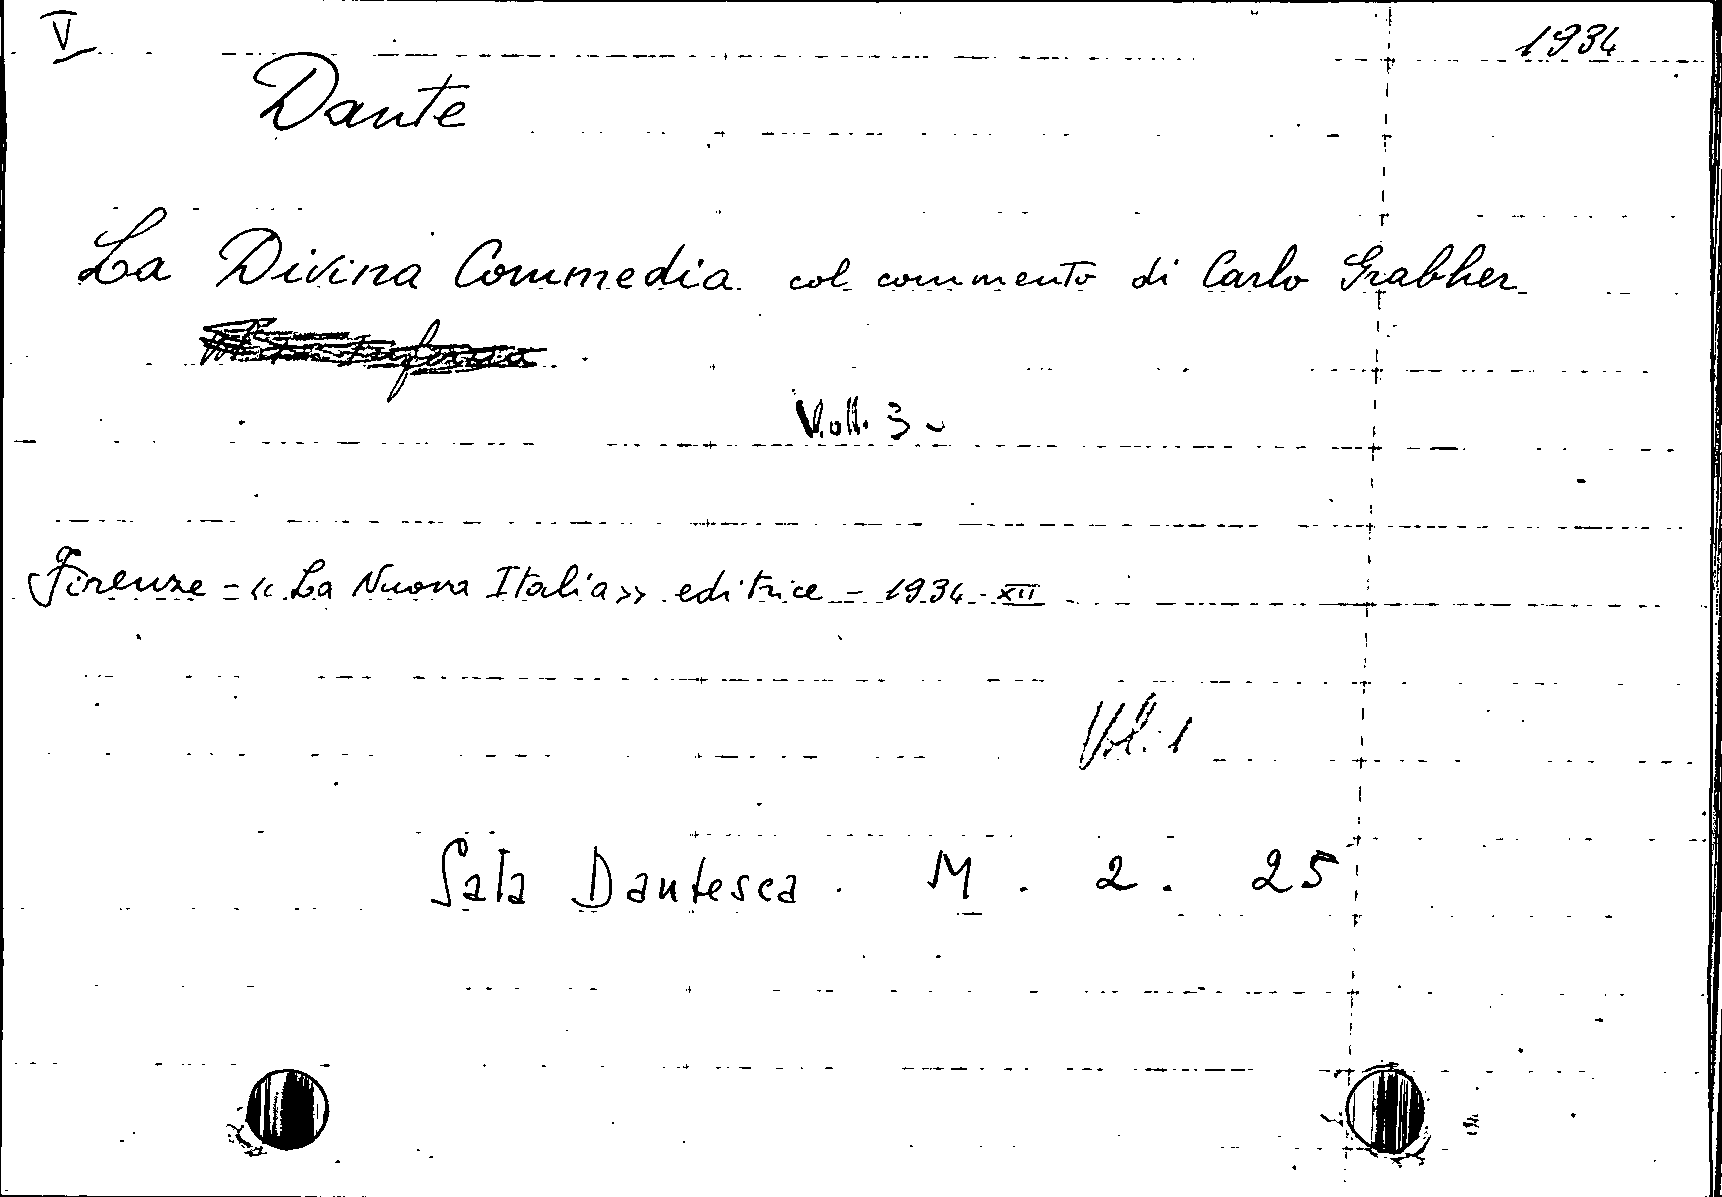 V 1934
Dante
La Divina Commedia col commento di Carlo Grabher
Voll. 3 -
Firenze - «La Nuova Italia» editrice - 1934 - XII
Vol. 1
Sala Dantesca . M . 2 . 25